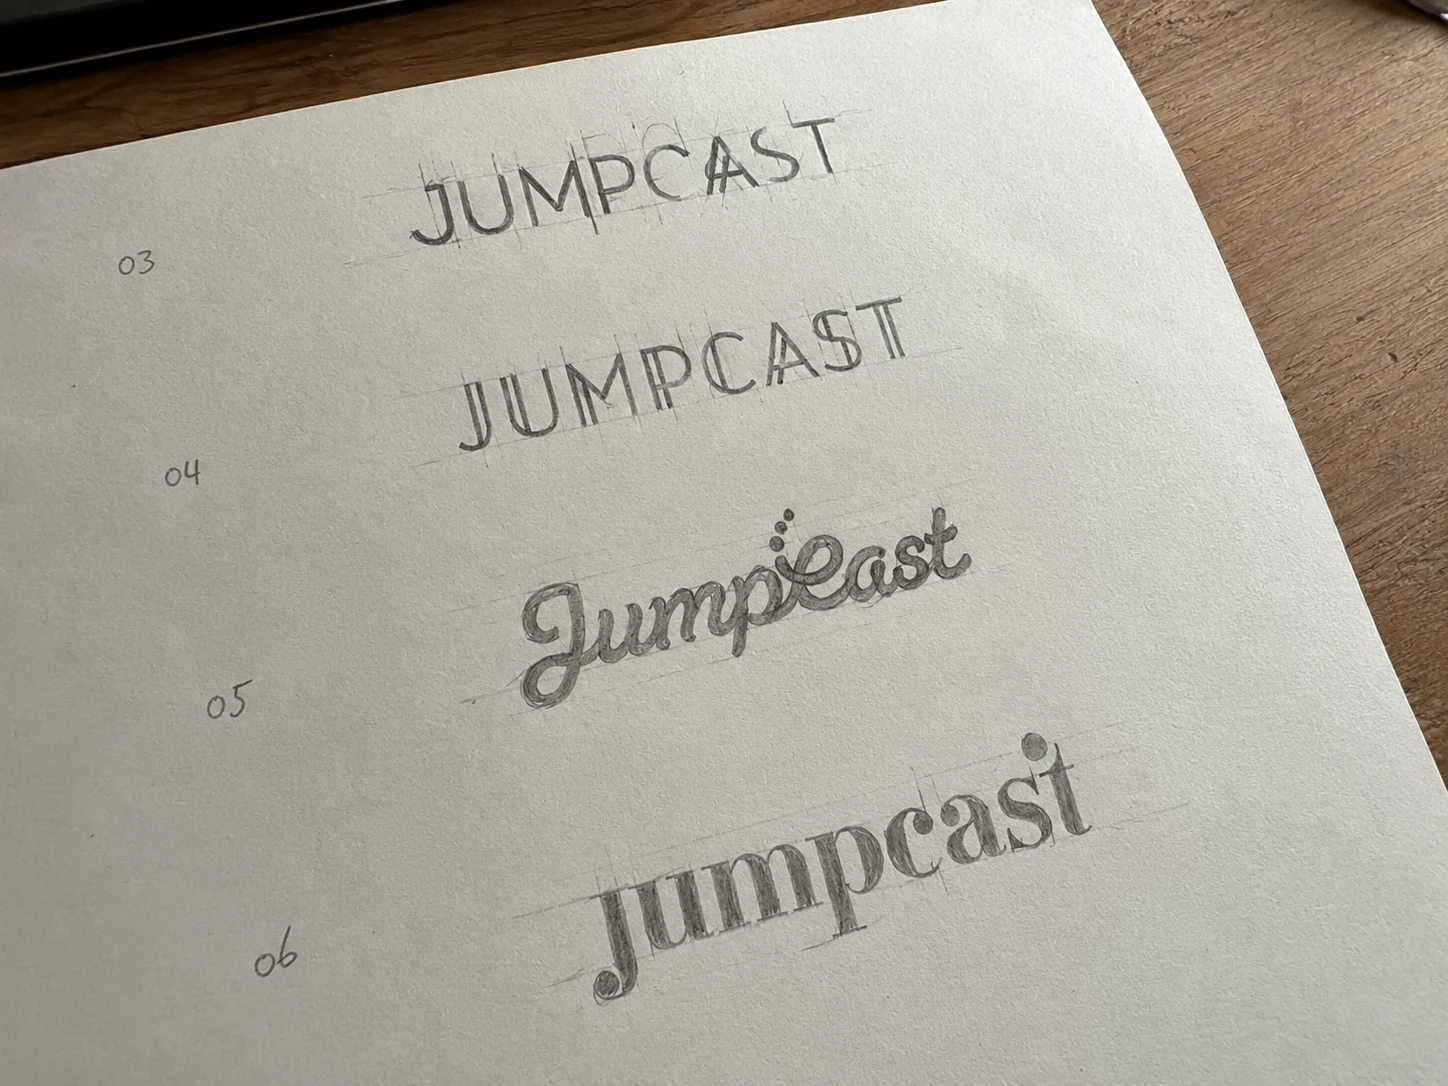 JUMPCAST
03
JUMPCAST
04
JumpCast
05
jumpcast
06